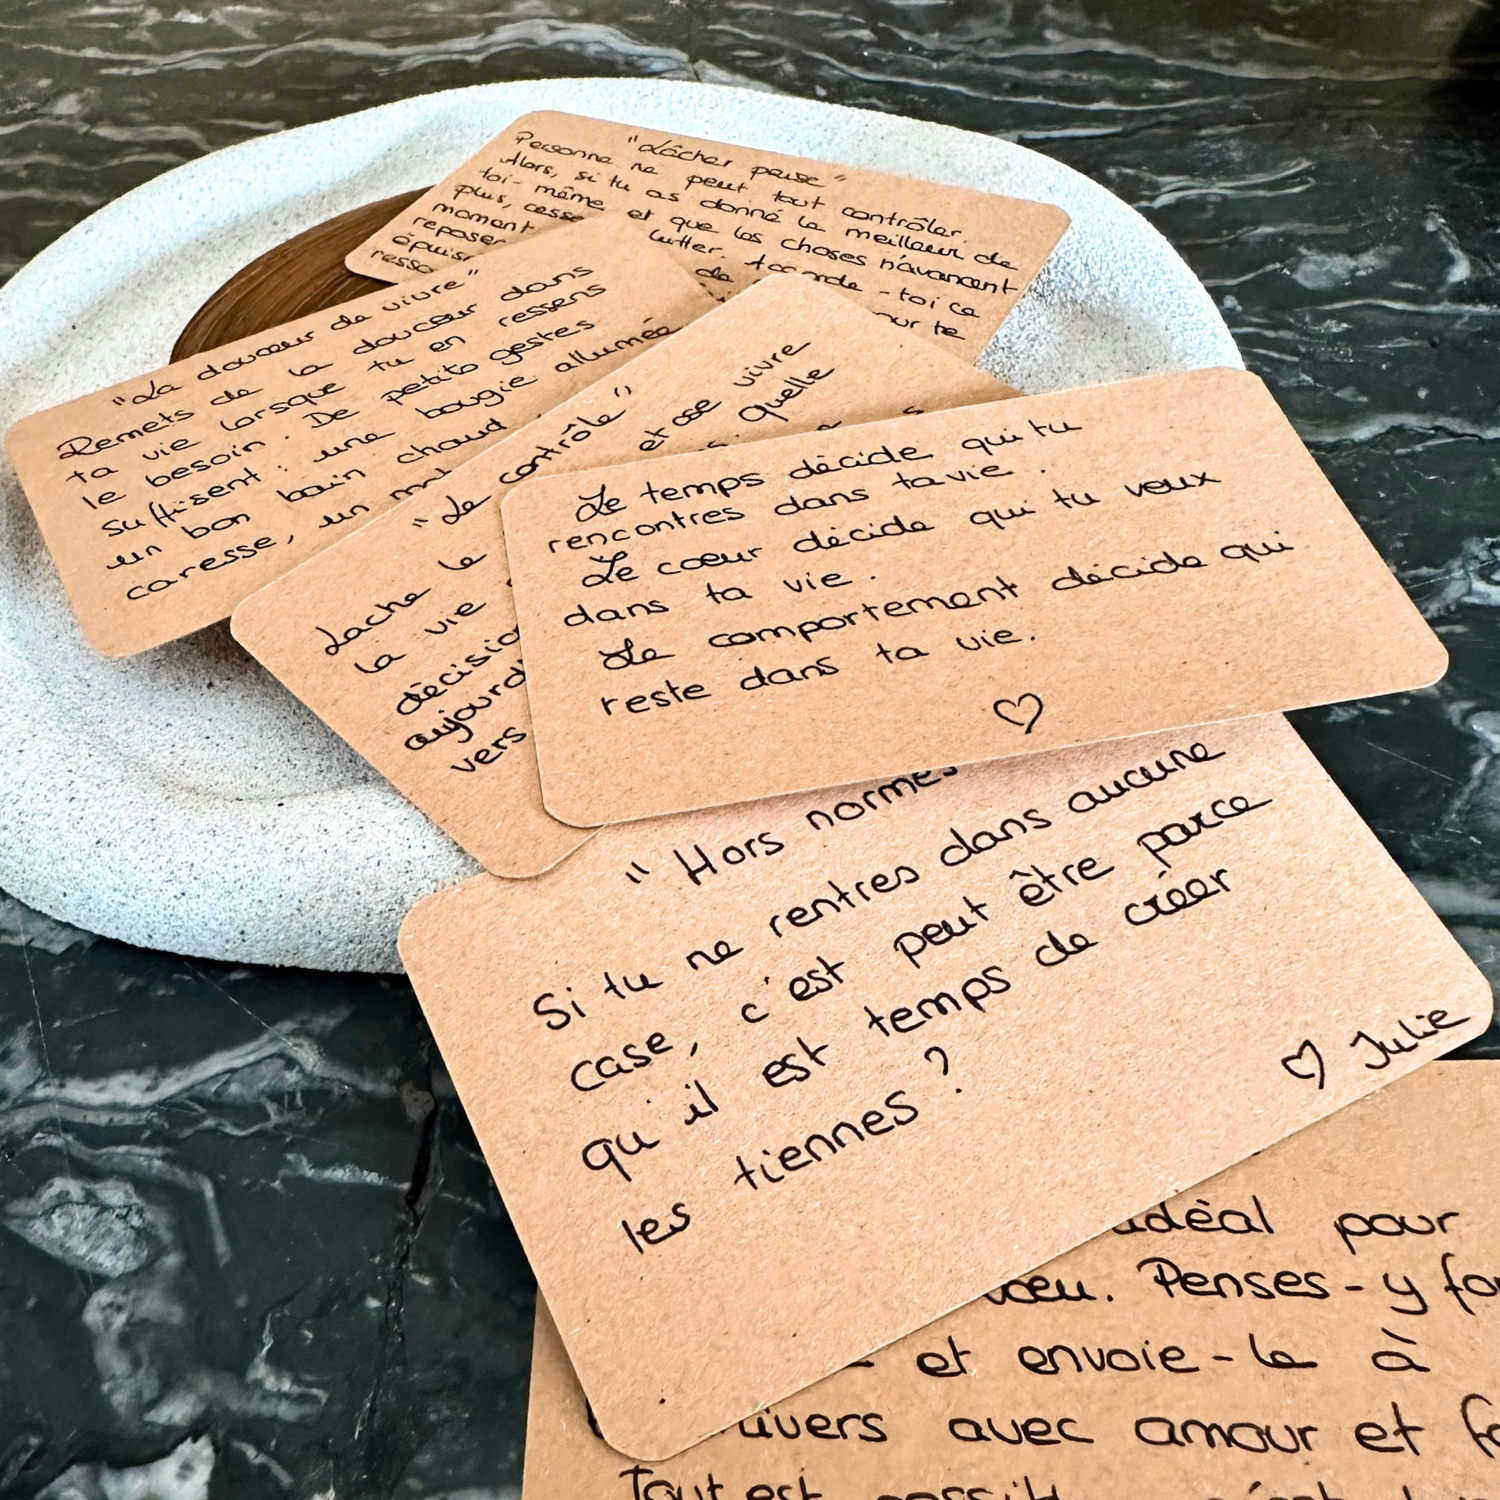 "Lâcher prise"
Personne ne peut tout contrôler.
Alors, si tu as donné le meilleur de
toi-même et que les choses n'avancent
plus, cesse lutter. Accorde-toi ce
moment de pour te
reposer
"La douceur de vivre"
Remets de la douceur dans
ta vie lorsque tu en ressens
le besoin. De petits gestes
suffisent : une bougie allumée
un bon bain chaud
caresse, un mot
"Le contrôle"
Lache le et ose vivre
la vie Quelle
décision
aujourd'
vers
Le temps décide qui tu
rencontres dans ta vie.
Le cœur décide qui tu veux
dans ta vie.
Le comportement décide qui
reste dans ta vie.
♡
"Hors normes
Si tu ne rentres dans aucune
case, c'est peut être parce
qu'il est temps de créer
les tiennes ?
♡ Julie
idéal pour
vœu. Penses-y
et envoie-le à
avec amour et
Tout est